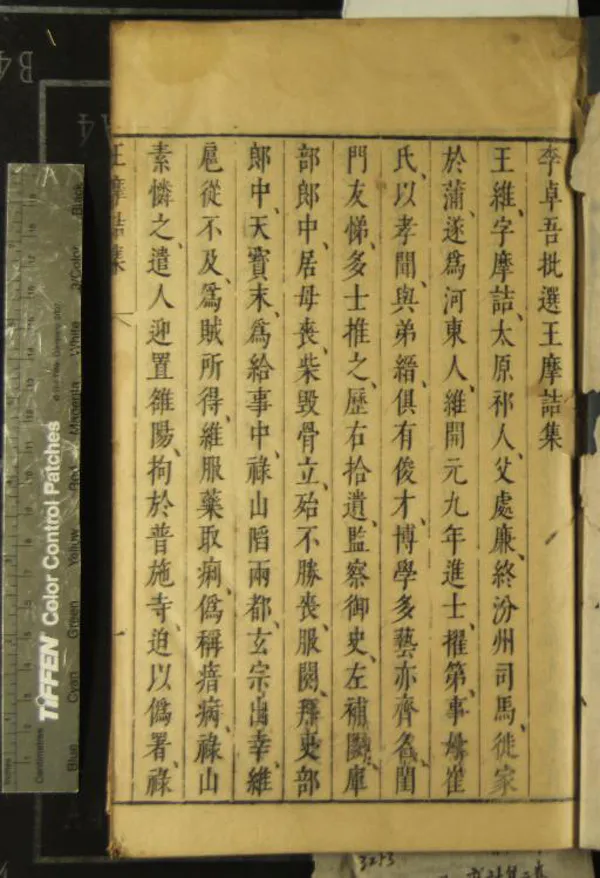 李卓吾批選王摩詰集
王維、字摩詰、太原祁人、父處廉、終汾州司馬、徙家
於蒲、遂為河東人、維開元九年進士、擢第、事母崔
氏、以孝聞、與弟縉、俱有俊才、博學多藝亦齊名、閨
門友悌、多士推之、歷右拾遺、監察御史、左補闕、庫
部郎中、居母喪、柴毀骨立、殆不勝喪、服闋、拜吏部
郎中、天寶末、為給事中、祿山陷兩都、玄宗出幸、維
扈從不及、為賊所得、維服藥取痢、偽稱瘖病、祿山
素憐之、遣人迎置雒陽、拘於普施寺、迫以偽署、祿
王摩詰集
一
TIFFEN Color Control Patches
Blue
Cyan
Green
Yellow
Red
Magenta
White
3/Color
Black
Inches
Centimetres
B4
A4
3253